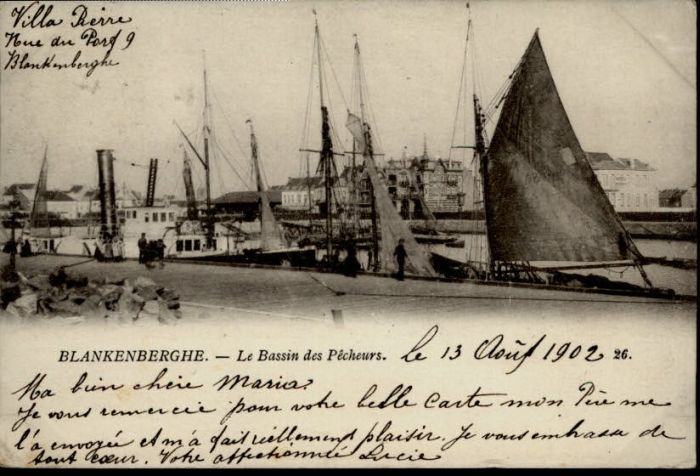 Villa Pierre
Rue du Port 9
Blankenberghe
BLANKENBERGHE. — Le Bassin des Pêcheurs. le 13 Août 1902 26.
Ma bien chère Maria.
Je vous remercie pour votre belle carte mon Père me
l'a envoyée et m'a fait réellement plaisir. Je vous embrasse de
tout cœur. Votre affectionnée Lucie